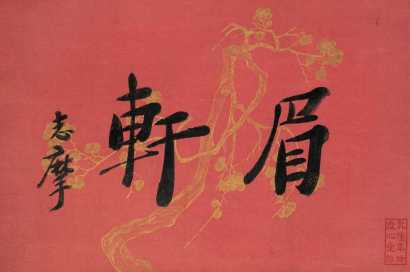 眉軒
志摩